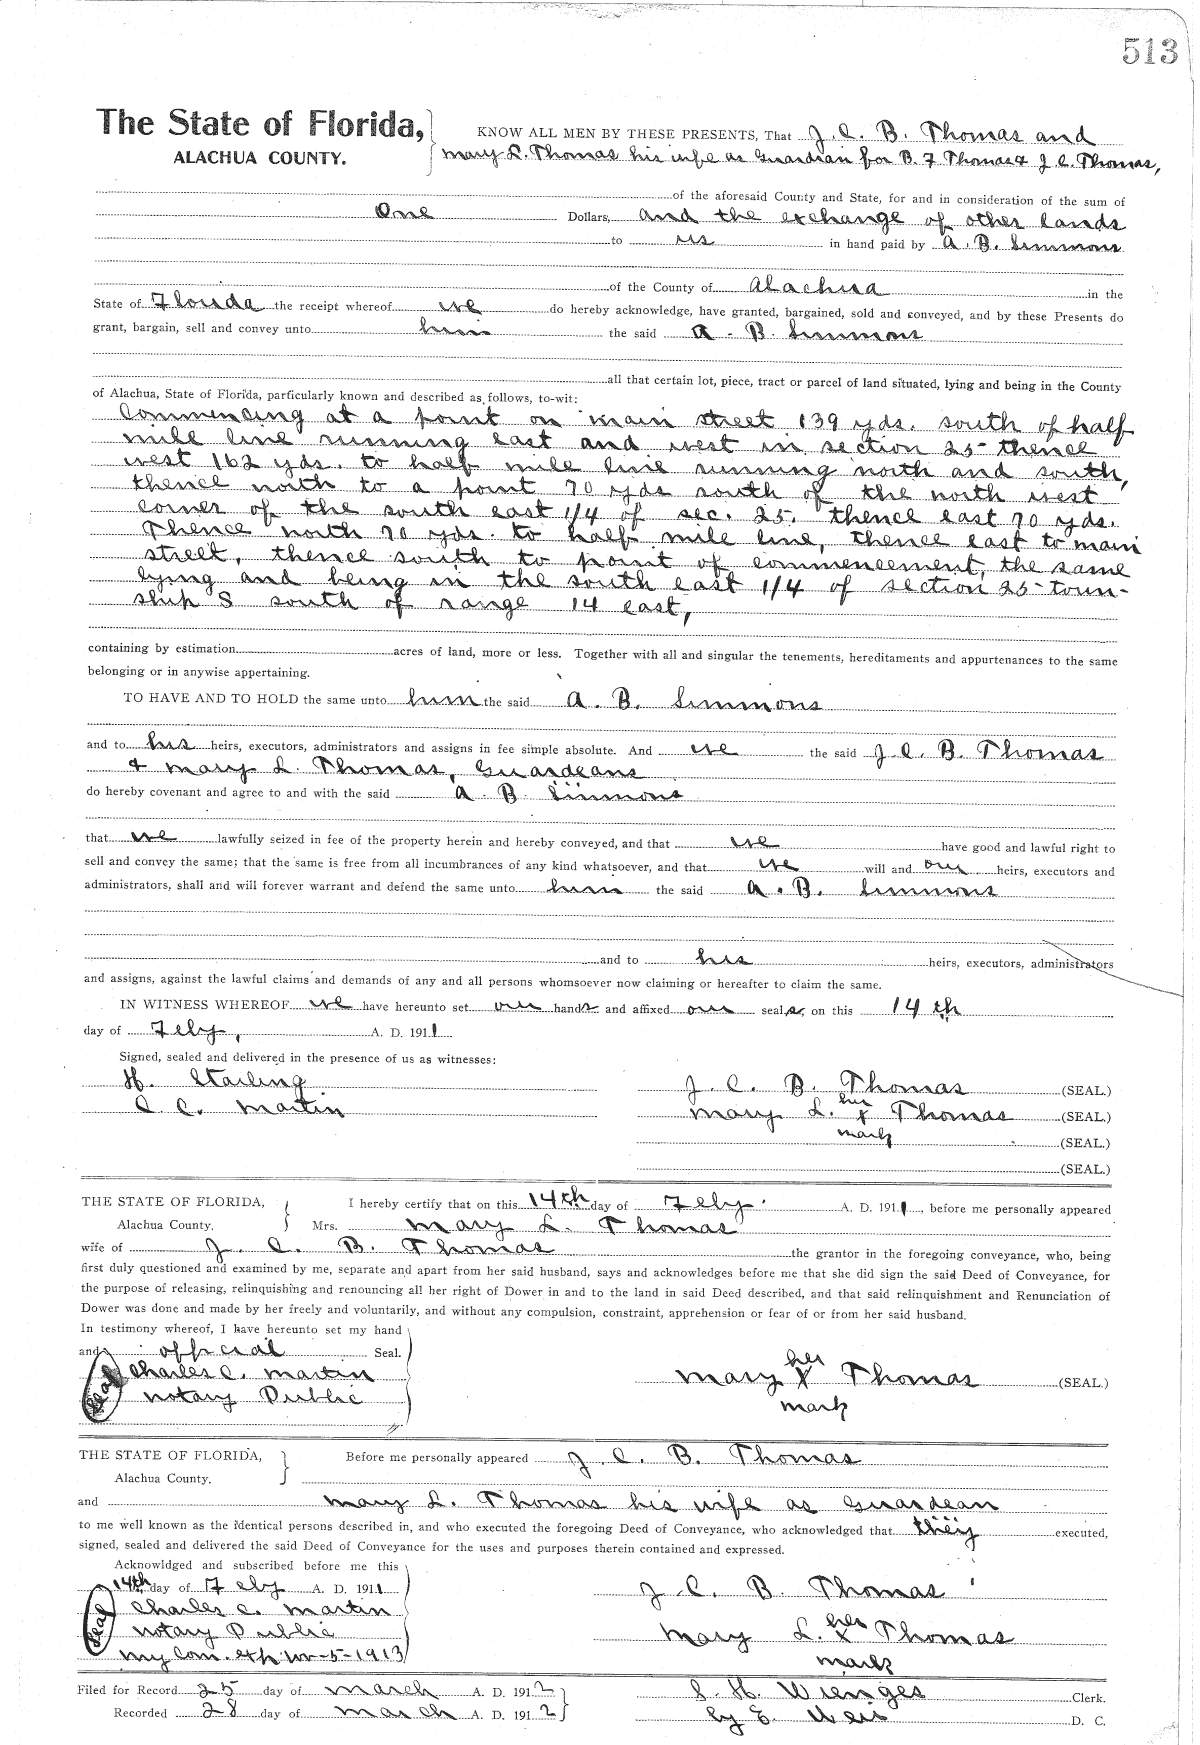 513
The State of Florida,
ALACHUA COUNTY.
KNOW ALL MEN BY THESE PRESENTS, That J. C. B. Thomas and
Mary L. Thomas his wife as Guardian for B. F Thomas & J. C. Thomas,
of the aforesaid County and State, for and in consideration of the sum of
One Dollars, and the exchange of other lands
to us in hand paid by A. B. Simmons
of the County of Alachua in the
State of Florida the receipt whereof we do hereby acknowledge, have granted, bargained, sold and conveyed, and by these Presents do
grant, bargain, sell and convey unto him the said A. B. Simmons
all that certain lot, piece, tract or parcel of land situated, lying and being in the County
of Alachua, State of Florida, particularly known and described as follows, to-wit:
Commencing at a point on main street 139 yds. south of half
mile line running east and west in section 25 thence
west 162 yds. to half mile line running north and south,
thence north to a point 70 yds south of the north west
corner of the south east 1/4 of sec. 25. thence east 70 yds.
Thence north 70 yds. to half mile line, thence east to main
street, thence south to point of commencement, the same
lying and being in the south east 1/4 of section 25 town-
ship 8 south of range 14 east,
containing by estimation acres of land, more or less. Together with all and singular the tenements, hereditaments and appurtenances to the same
belonging or in anywise appertaining.
TO HAVE AND TO HOLD the same unto him the said A. B. Simmons
and to his heirs, executors, administrators and assigns in fee simple absolute. And we the said J. C. B. Thomas
& Mary L. Thomas, Guardeans
do hereby covenant and agree to and with the said A. B. Simmons
that we lawfully seized in fee of the property herein and hereby conveyed, and that we have good and lawful right to
sell and convey the same; that the same is free from all incumbrances of any kind whatsoever, and that we will and our heirs, executors and
administrators, shall and will forever warrant and defend the same unto him the said A. B. Simmons
and to his heirs, executors, administrators
and assigns, against the lawful claims and demands of any and all persons whomsoever now claiming or hereafter to claim the same.
IN WITNESS WHEREOF we have hereunto set our hands and affixed our seals on this 14th
day of Feby, A. D. 1911
Signed, sealed and delivered in the presence of us as witnesses:
H. Starling
C. C. Martin
J. C. B. Thomas (SEAL.)
her
Mary L. x Thomas (SEAL.)
mark (SEAL.)
(SEAL.)
THE STATE OF FLORIDA, I hereby certify that on this 14th day of Feby. A. D. 1911, before me personally appeared
Alachua County. Mrs. Mary L. Thomas
wife of J. C. B. Thomas the grantor in the foregoing conveyance, who, being
first duly questioned and examined by me, separate and apart from her said husband, says and acknowledges before me that she did sign the said Deed of Conveyance, for
the purpose of releasing, relinquishing and renouncing all her right of Dower in and to the land in said Deed described, and that said relinquishment and Renunciation of
Dower was done and made by her freely and voluntarily, and without any compulsion, constraint, apprehension or fear of or from her said husband.
In testimony whereof, I have hereunto set my hand
and official Seal.
Seal
Charles C. Martin
Notary Public
her
Mary x Thomas (SEAL.)
mark
THE STATE OF FLORIDA, Before me personally appeared J. C. B. Thomas
Alachua County.
and Mary L. Thomas his wife as Guardean
to me well known as the identical persons described in, and who executed the foregoing Deed of Conveyance, who acknowledged that they executed,
signed, sealed and delivered the said Deed of Conveyance for the uses and purposes therein contained and expressed.
Acknowldged and subscribed before me this
14th day of Feby A. D. 1911
Seal
Charles C. Martin
Notary Public
my Com. exp Nov-5-1913
J. C. B. Thomas
her
Mary L. x Thomas
mark
Filed for Record 25 day of March A. D. 1912
Recorded 28 day of March A. D. 1912
S. H. Wienges Clerk.
by E. Weir D. C.